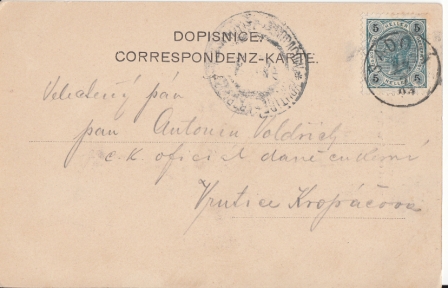 DOPISNICE.
CORRESPONDENZ-KARTE.
5 5
Velectěný pán
pan Antonín Voldřich
c. k. oficiál daně cukerní
Vrutice Kropáčova